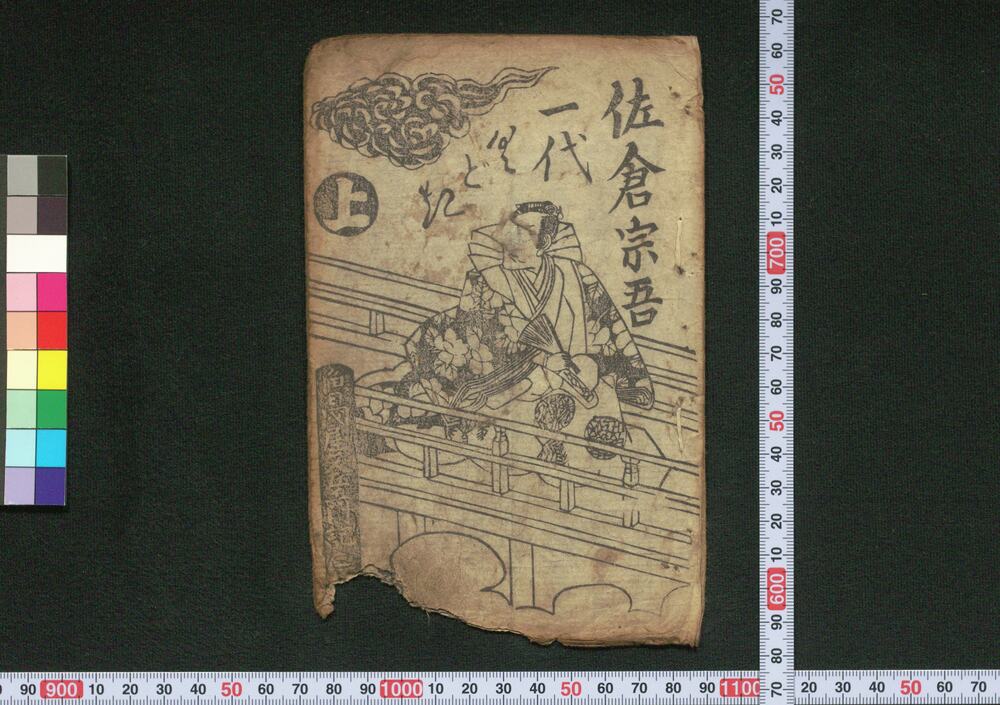 佐倉宗吾
一代
くどき
上
70
60
50
40
30
20
10
700
90
80
70
60
50
40
30
20
10
600
90
80
70
90
900
10
20
30
40
50
60
70
80
90
1000
10
20
30
40
50
60
70
80
90
1100
20
30
40
50
60
70